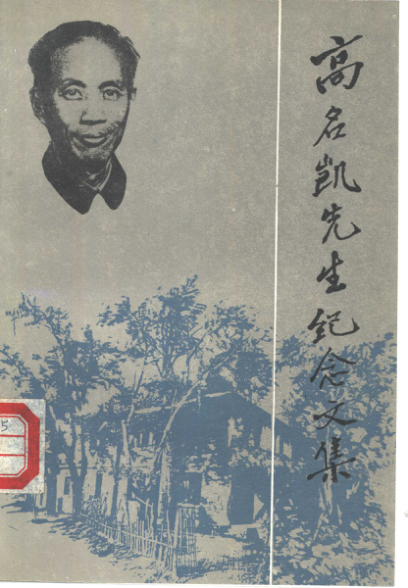 高名凯先生纪念文集
5